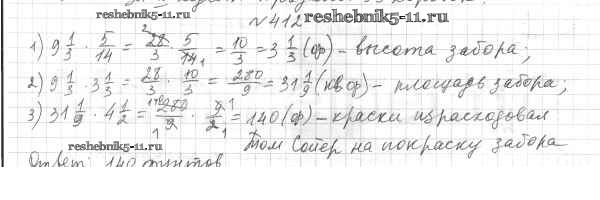 reshebnik5-11.ru
№412 reshebnik5-11.ru
1) 9 1/3 · 5/14 = 28/3 · 5/14 = 10/3 = 3 1/3 (ф) – высота забора;
2) 9 1/3 · 3 1/3 = 28/3 · 10/3 = 280/9 = 31 1/9 (кв ф) – площадь забора;
3) 31 1/9 · 4 1/2 = 280/9 · 9/2 = 140 (ф) – краски израсходовал
Том Сойер на покраску забора
reshebnik5-11.ru
Ответ: 140 фунтов